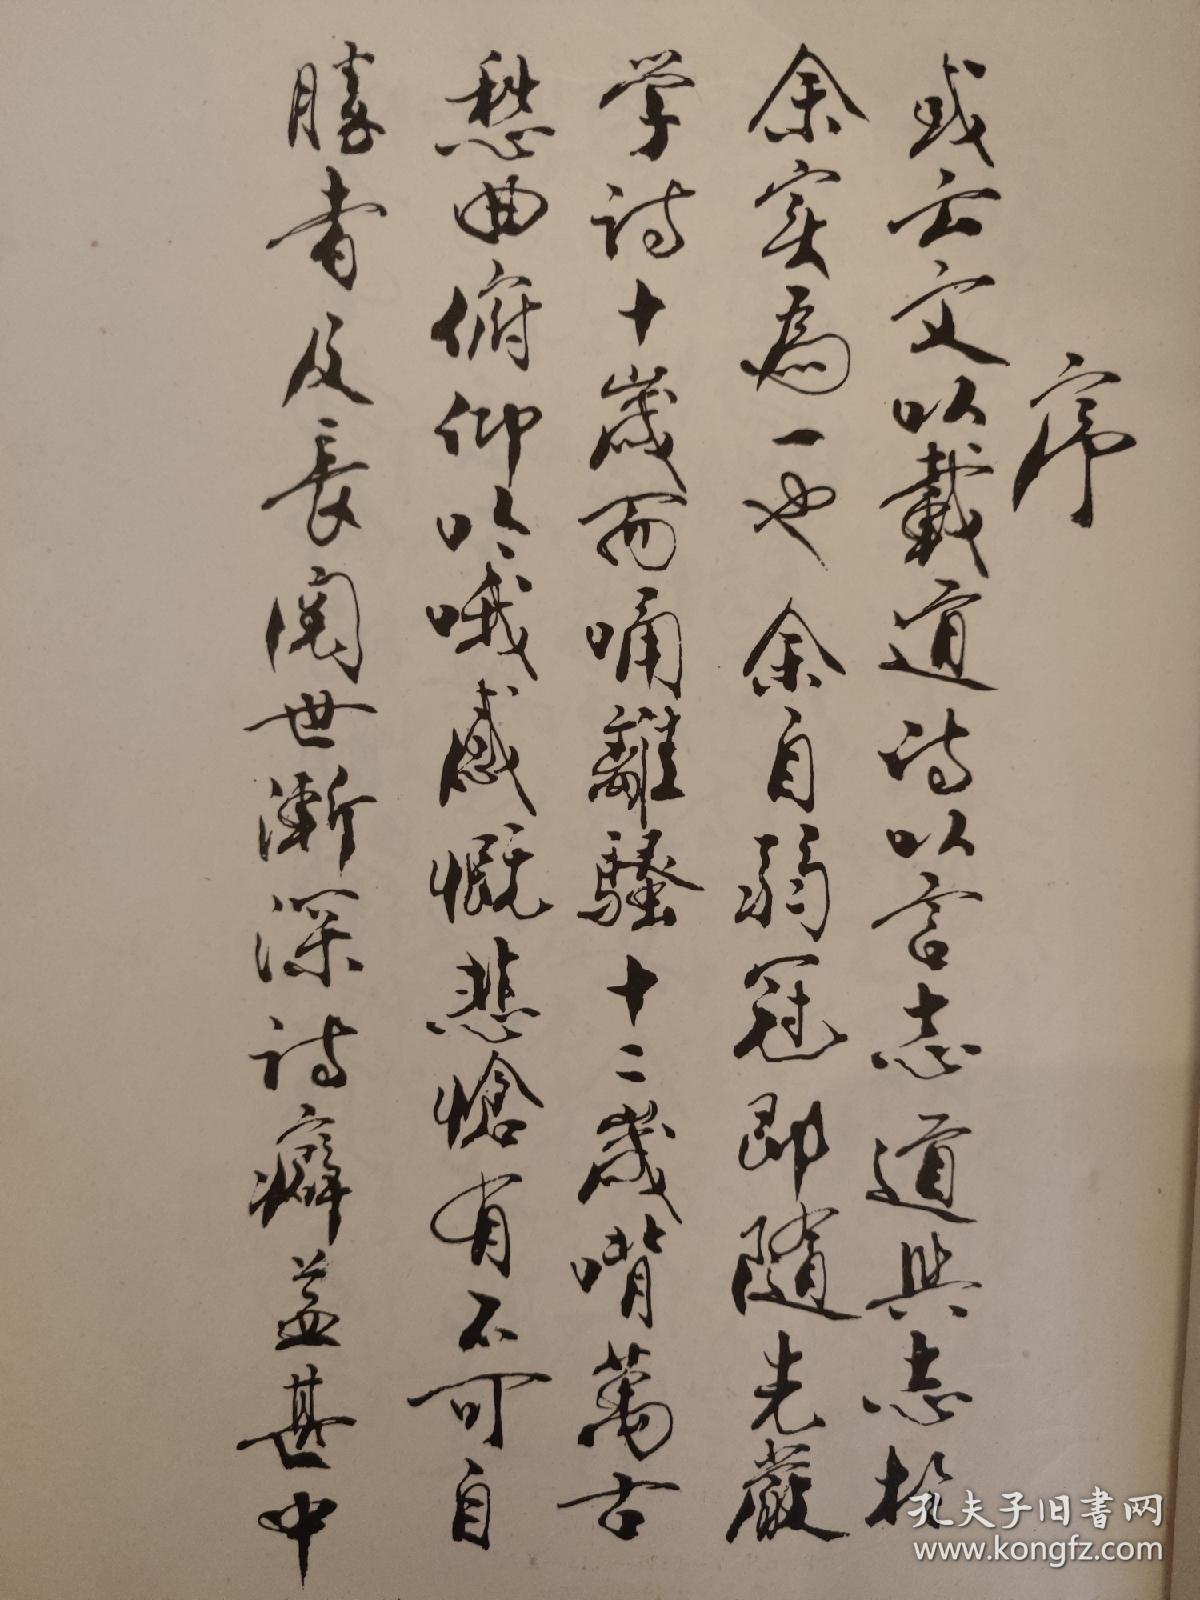 序
或云文以載道詩以言志道與志於
余实為一也余自弱冠即隨先嚴
学詩十歲而誦離騷十二歲啃萬古
愁曲俯仰吟哦感慨悲愴有不可自
勝者及長閱世漸深詩癖益甚中
孔夫子旧书网
www.kongfz.com